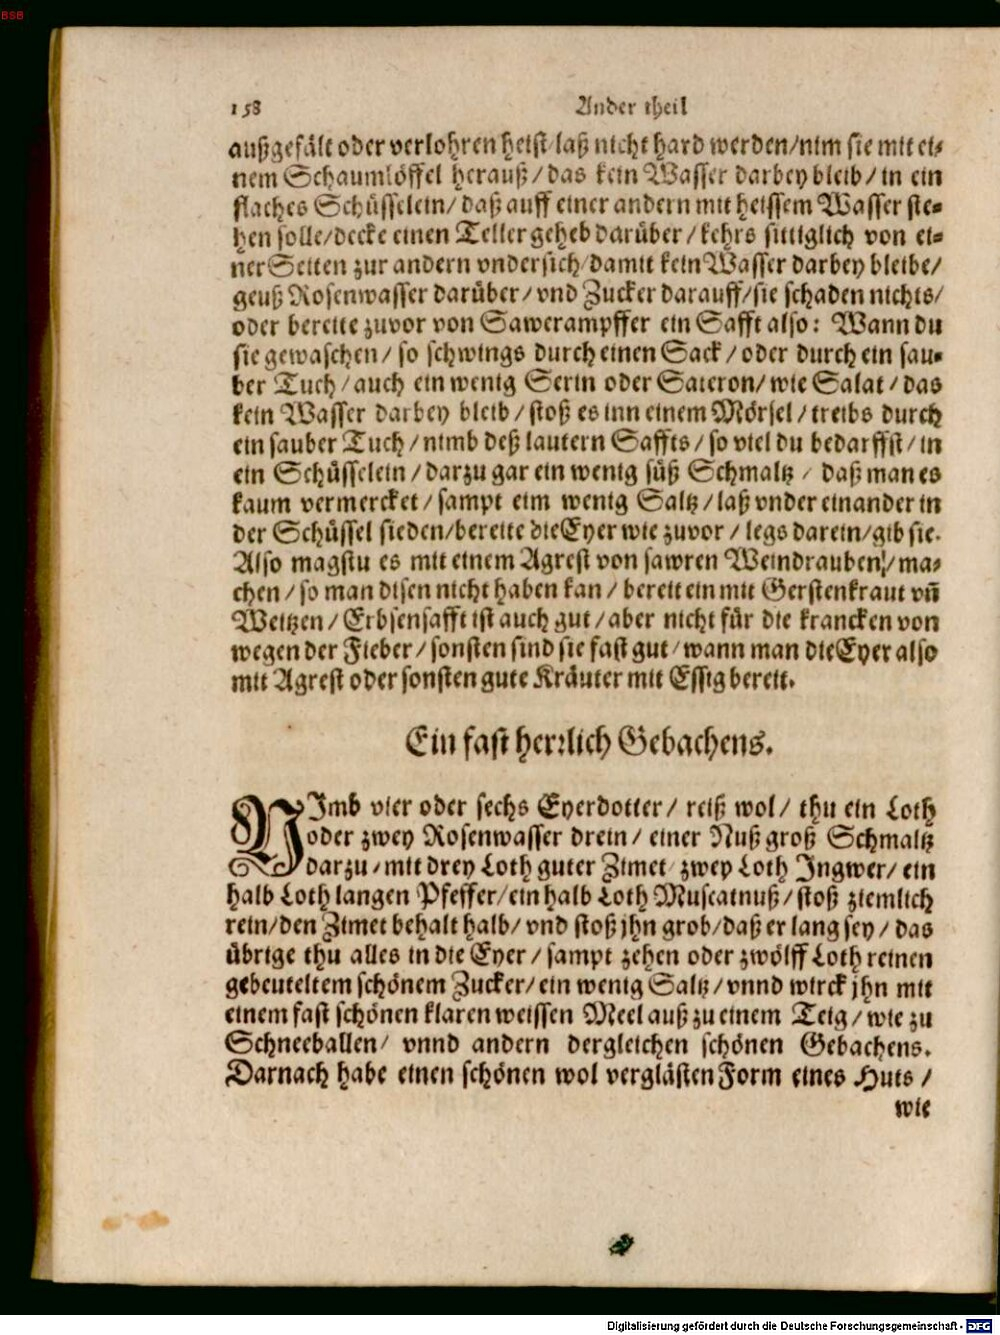 BSB
158 Ander theil
außgefält oder verlohren heist / laß nicht hard werden / nim sie mit ei⸗
nem Schaumlöffel herauß / das kein Wasser darbey bleib / in ein
flaches Schüsselein / daß auff einer andern mit heissem Wasser ste⸗
hen solle / decke einen Teller geheb darüber / kehrs sittiglich von ei⸗
ner Seiten zur andern vndersich / damit kein Wasser darbey bleibe /
geuß Rosenwasser darüber / vnd Zucker darauff / sie schaden nichts /
oder bereite zuvor von Sawerampffer ein Safft also: Wann du
sie gewaschen / so schwings durch einen Sack / oder durch ein sau⸗
ber Tuch / auch ein wenig Serin oder Sateron / wie Salat / das
kein Wasser darbey bleib / stoß es inn einem Mörsel / treibs durch
ein sauber Tuch / nimb deß lautern Saffts / so viel du bedarffst / in
ein Schüsselein / darzu gar ein wenig süß Schmaltz / daß man es
kaum vermercket / sampt eim wenig Saltz / laß vnder einander in
der Schüssel sieden / bereite die Eyer wie zuvor / legs darein / gib sie.
Also magstu es mit einem Agrest von sawren Weindrauben / ma⸗
chen / so man disen nicht haben kan / bereit ein mit Gerstenkraut vñ
Weitzen / Erbsensafft ist auch gut / aber nicht für die krancken von
wegen der Fieber / sonsten sind sie fast gut / wann man die Eyer also
mit Agrest oder sonsten gute Kräuter mit Essig bereit.
Ein fast herꝛlich Gebachens.
NImb vier oder sechs Eyerdotter / reiß wol / thu ein Loth
oder zwey Rosenwasser drein / einer Nuß groß Schmaltz
darzu / mit drey Loth guter Zimet / zwey Loth Ingwer / ein
halb Loth langen Pfeffer / ein halb Loth Muscatnuß / stoß ziemlich
rein / den Zimet behalt halb / vnd stoß jhn grob / daß er lang sey / das
übrige thu alles in die Eyer / sampt zehen oder zwölff Loth reinen
gebeuteltem schönem Zucker / ein wenig Saltz / vnnd wirck jhn mit
einem fast schönen klaren weissen Meel auß zu einem Teig / wie zu
Schneeballen / vnnd andern dergleichen schönen Gebachens.
Darnach habe einen schönen wol verglästen Form eines Huts /
wie
Digitalisierung gefördert durch die Deutsche Forschungsgemeinschaft - DFG